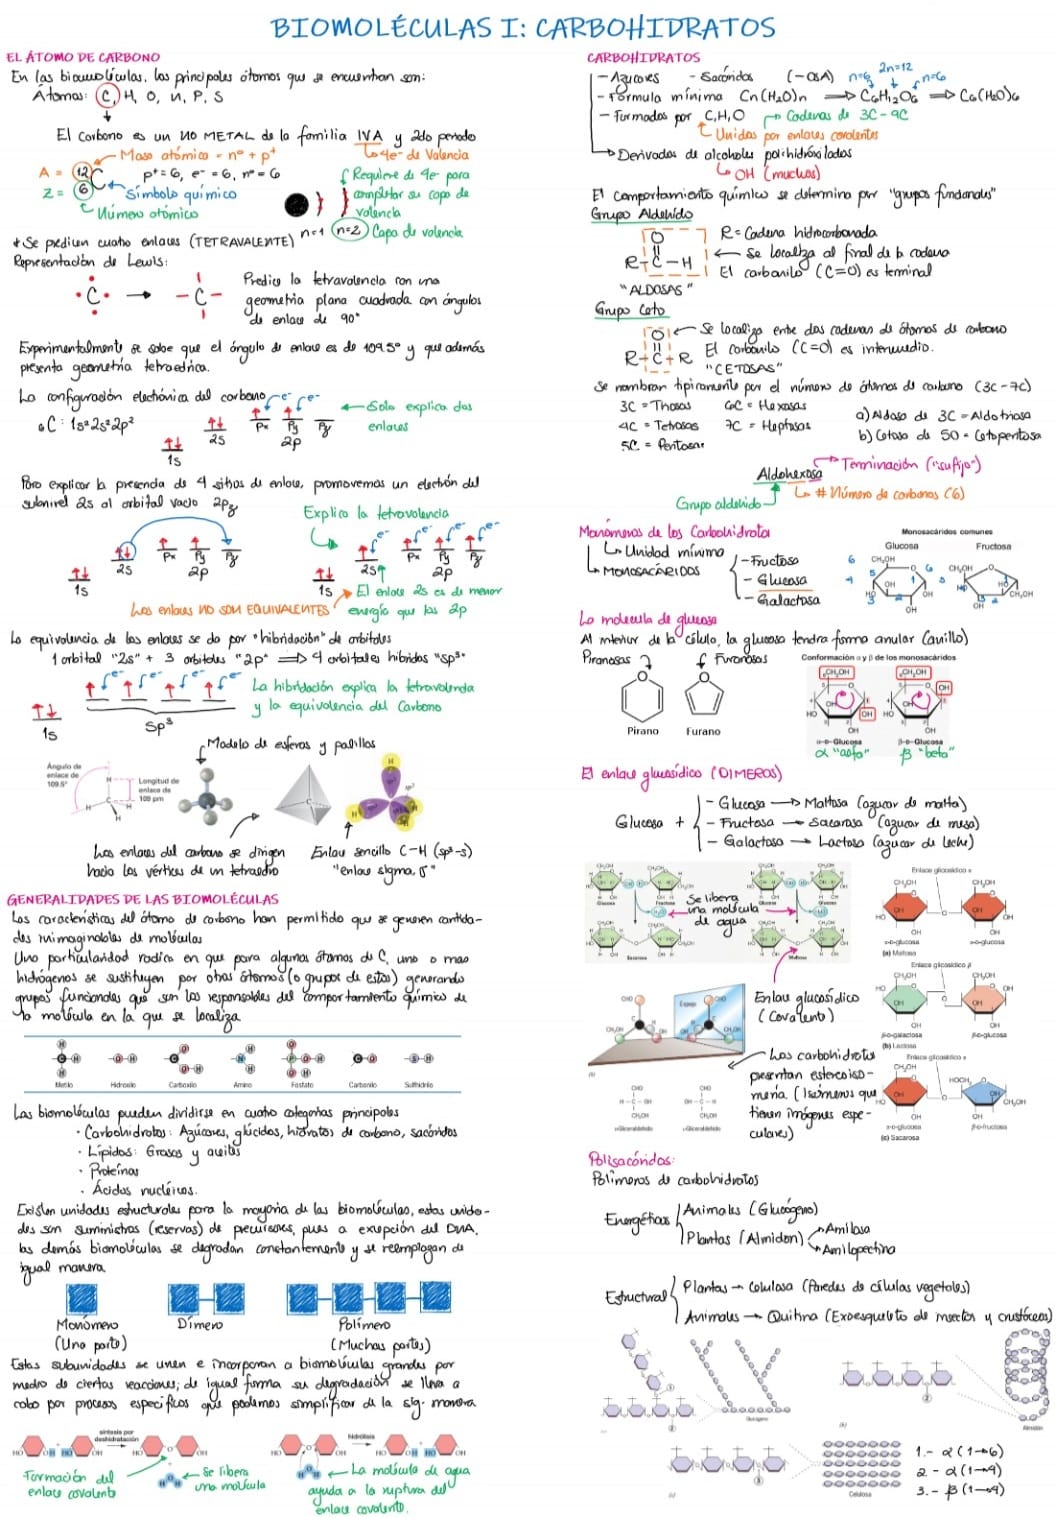 BIOMOLÉCULAS I: CARBOHIDRATOS
EL ÁTOMO DE CARBONO
En las biomoléculas, los principales átomos que se encuentran son:
Átomos: C, H, O, N, P, S
El Carbono es un NO METAL de la familia IVA y 2do periodo
Masa atómica = n° + p+
4e- de Valencia
A = 12
C
Z = 6
p+ = 6, e- = 6, n° = 6
Símbolo químico
Número atómico
Requiere de 4e- para
completar su capa de
valencia
n=1 n=2 Capa de valencia
* Se predicen cuatro enlaces (TETRAVALENTE)
Representación de Lewis:
C → C
Predice la tetravalencia con una
geometría plana cuadrada con ángulos
de enlace de 90°
Experimentalmente se sabe que el ángulo de enlace es de 109.5° y que además
presenta geometría tetraédrica.
La configuración electrónica del carbono
6C: 1s² 2s² 2p²
1s
2s
Px Py Pz
2p
e- e-
Solo explica dos
enlaces
Para explicar la presencia de 4 sitios de enlace, promovemos un electrón del
subnivel 2s al orbital vacío 2pz
Explica la tetravalencia
1s
2s
Px Py Pz
2p
1s
2s
Px Py Pz
2p
e- e- e- e-
El enlace 2s es de menor
energía que los 2p
Los enlaces NO SON EQUIVALENTES
La equivalencia de los enlaces se da por "hibridación" de orbitales
1 orbital "2s" + 3 orbitales "2p" ⇒ 4 orbitales híbridos "sp³"
1s
e- e- e- e-
Sp³
La hibridación explica la tetravalencia
y la equivalencia del Carbono
Modelo de esferas y palillos
Ángulo de
enlace de
109.5°
Longitud de
enlace de
109 pm
Los enlaces del carbono se dirigen
hacia los vértices de un tetraedro
Enlace sencillo C-H (sp³-s)
"enlace sigma, σ"
GENERALIDADES DE LAS BIOMOLÉCULAS
Las características del átomo de carbono han permitido que se generen cantida-
des inimaginables de moléculas
Una particularidad radica en que para algunos átomos de C, uno o mas
hidrógenos se sustituyen por otros átomos (o grupos de estos) generando
grupos funcionales que son los responsables del comportamiento químico de
la molécula en la que se localiza
Metilo Hidroxilo Carboxilo Amino Fosfato Carbonilo Sulfhidrilo
Las biomoléculas pueden dividirse en cuatro categorías principales
· Carbohidratos: Azúcares, glúcidos, hidratos de carbono, sacáridos
· Lípidos: Grasas y aceites
· Proteínas
· Ácidos nucléicos.
Existen unidades estructurales para la mayoría de las biomoléculas, estas unida-
des son suministros (reservas) de precursores, pues a excepción del DNA,
las demás biomoléculas se degradan constantemente y se reemplazan de
igual manera
Monómero
(Una parte)
Dímero
Polímero
(Muchas partes)
Estas subunidades se unen e incorporan a biomoléculas grandes por
medio de ciertas reacciones; de igual forma su degradación se lleva a
cabo por procesos específicos que podemos simplificar de la sig. manera
síntesis por
deshidratación
HO OH HO OH HO OH
Formación del
enlace covalente
Se libera
una molécula
hidrólisis
HO OH HO OH HO OH
La molécula de agua
ayuda a la ruptura del
enlace covalente.
CARBOHIDRATOS
- Azúcares - Sacáridos (-OSA)
- Fórmula mínima Cn(H₂O)n ⇒ C₆H₁₂O₆ ⇒ C₆(H₂O)₆
n=6 2n=12 n=6
- Formados por C,H,O Cadenas de 3C - 9C
Unidos por enlaces covalentes
Derivados de alcoholes polihidroxilados
OH (muchos)
El comportamiento químico se determina por "grupos funcionales"
Grupo Aldehído
O
R-C-H
"ALDOSAS"
R = Cadena hidrocarbonada
Se localiza al final de la cadena
El carbonilo (C=O) es terminal
Grupo Ceto
O
R-C-R
"CETOSAS"
Se localiza entre dos cadenas de átomos de carbono
El carbonilo (C=O) es intermedio.
Se nombran típicamente por el número de átomos de carbono (3C-7C)
3C = Triosas 6C = Hexosas
4C = Tetrosas 7C = Heptosas
5C = Pentosas
a) Aldosa de 3C = Aldotriosa
b) Cetosa de 5C = Cetopentosa
Aldohexosa
Terminación ("sufijo")
# Número de carbonos (6)
Grupo aldehído
Monómeros de los Carbohidratos
Unidad mínima
MONOSACÁRIDOS
- Fructosa
- Glucosa
- Galactosa
Monosacáridos comunes
Glucosa Fructosa
La molécula de glucosa
Al interior de la célula, la glucosa tendra forma anular (anillo)
Piranosas Furanosas
Pirano Furano
Conformación α y β de los monosacáridos
α-D-Glucosa β-D-Glucosa
α "alfa" β "beta"
El enlace glucosídico (DIMEROS)
Glucosa +
- Glucosa → Maltosa (azucar de malta)
- Fructosa → Sacarosa (azucar de mesa)
- Galactosa → Lactosa (azucar de leche)
Glucosa Fructosa Glucosa Glucosa
Se libera
una molécula
de agua
Sacarosa Maltosa
Enlace glucosídico
(Covalente)
Enlace glicosídico α
α-D-glucosa α-D-glucosa
(a) Maltosa
Enlace glicosídico β
β-D-galactosa β-D-glucosa
(b) Lactosa
Enlace glicosídico α
α-D-glucosa β-D-fructosa
(c) Sacarosa
Espejo
Los carbohidratos
presentan estereoiso-
mería (Isómeros que
tienen imágenes espe-
culares)
Polisacáridos:
Polímeros de carbohidratos
Energéticos
Animales (Glucógeno)
Plantas (Almidón)
Amilosa
Amilopectina
Estructural
Plantas → Celulosa (Paredes de células vegetales)
Animales → Quitina (Exoesqueleto de insectos y crustáceos)
Glucógeno
Almidón
Celulosa
1.- α (1→6)
2.- α (1→4)
3.- β (1→4)